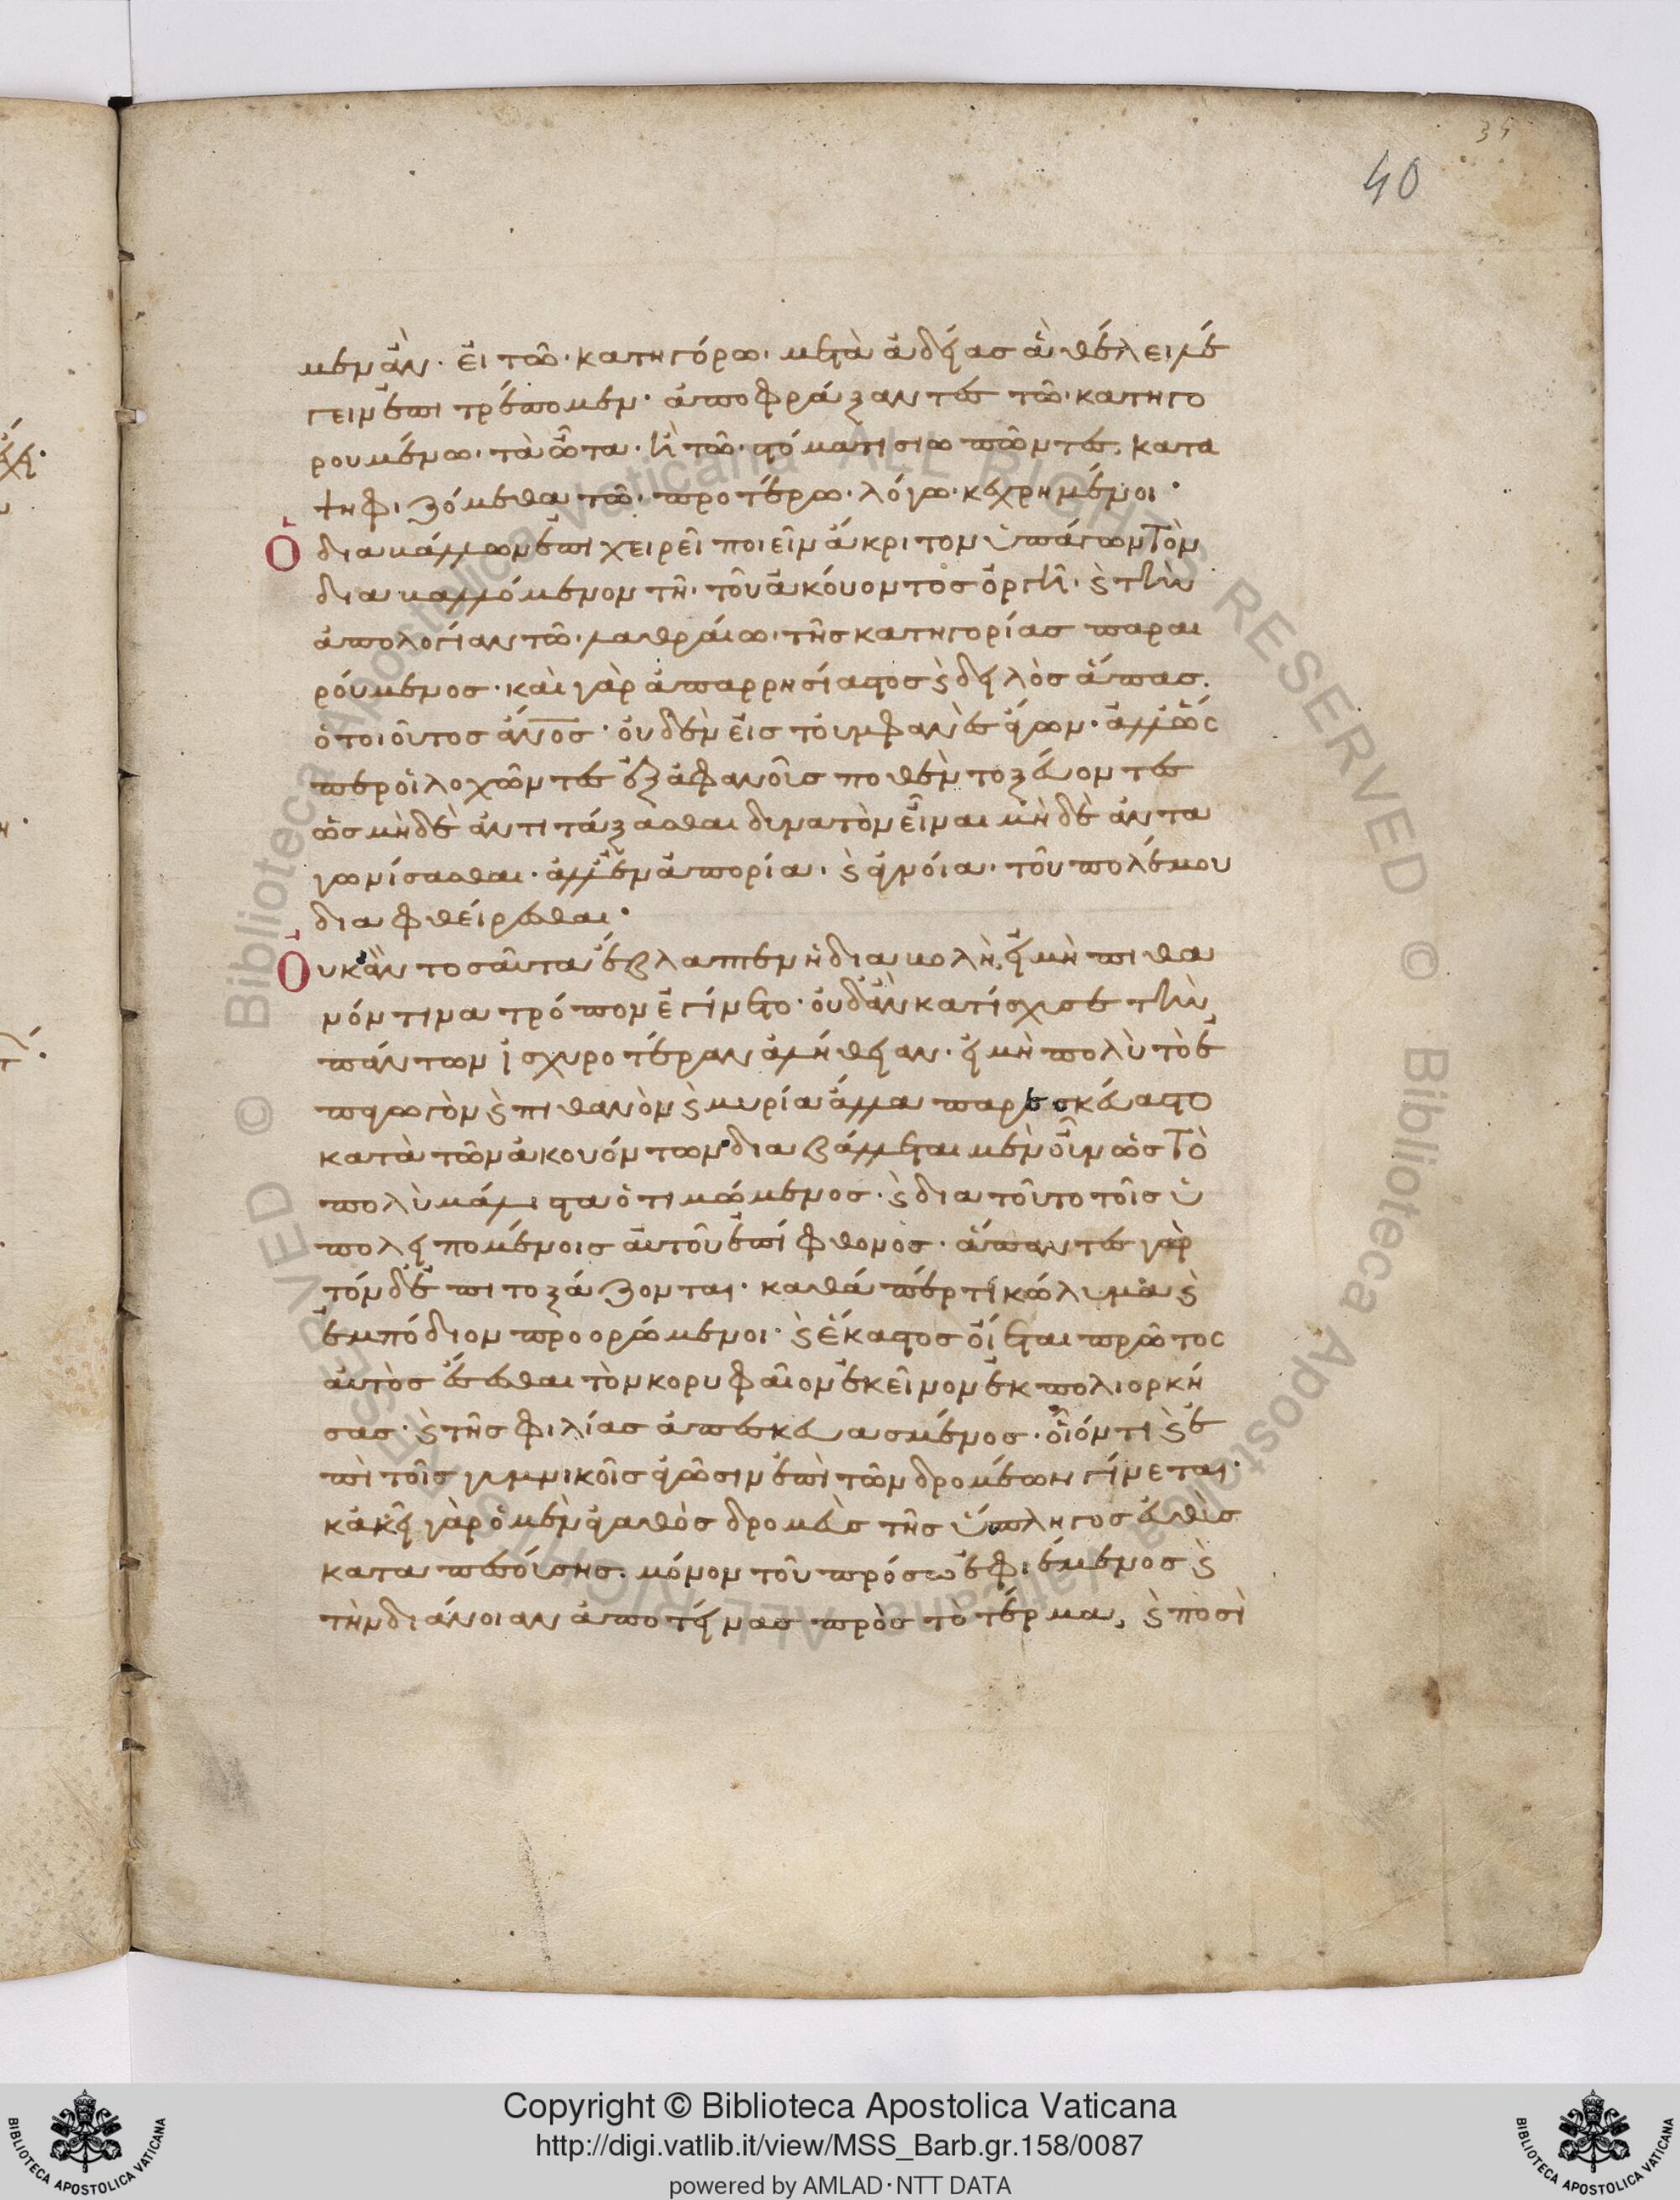 40
μεν ἂν· εἰ τῶ· κατηγόρω· μετὰ ἀδείας ἃ θέλει λέ
γειν ἐπιτρέπομεν· ἀποφράξαντες τῶ· κατηγο
ρουμένω· τὰ ὦτα· ἢ τῶ· στόματι σιωπῶντες, κατα
ψηφιζόμεθα τῶ· προτέρω· λόγω· κεχρημένοι·
Ὁ διαβάλλων ἐπιχειρεῖ ποιεῖν ἄκριτον ὑπάγων τὸν
διαβαλλόμενον τῆ· τοῦ ἀκούοντος ὀργῆ· καὶ τὴν
ἀπολογίαν τῶ· λαθραίω· τῆς κατηγορίας παραι
ρούμενος· καὶ γὰρ ἀπαρρησίαστος καὶ δειλὸς ἅπας·
ὁ τοιοῦτος ἄνος· οὐδὲν εἰς τοὐμφανὲς ἄγων· ἀλλ' ὥσ
περ οἱ λοχῶντες ἐξ ἀφανοῦς ποθὲν τοξεύοντες
ὡς μὴ δὲ ἀντιτάξασθαι δυνατὸν εἶναι μὴ δὲ ἀντα
γωνίσασθαι· ἀλλ' ἐν ἀπορία· καὶ ἀγνοία· τοῦ πολέμου
διαφθείρεσθαι·
Οὐκ ἂν τοσαῦτα ἔβλαπτεν ἡ διαβολὴ, εἰ μὴ πιθα
νόν τινα τρόπον ἐγίνετο· οὐδ' ἂν κατίσχυε τὴν
πάντων ἰσχυροτέραν ἀλήθειαν· εἰ μὴ πολὺ τὸ ἐ
παγωγὸν καὶ πιθανὸν καὶ μυρία ἄλλα παρεσκεύαστο
κατὰ τῶν ἀκουόντων· διαβάλλεται μὲν οὖν ὡς τὸ
πολὺ μάλιστα ὁ τιμώμενος· καὶ διὰ τοῦτο τοῖς ὑ
πολειπομένοις αὐτοῦ ἐπίφθονος· ἅπαντες γὰρ
τόνδε ἐπιτοξάζονται· καθάπερ τι κώλυμα καὶ
ἐμπόδιον προορώμενοι· καὶ ἕκαστος οἴεται πρῶτος
αὐτὸς ἔσεσθαι τὸν κορυφαῖον ἐκεῖνον ἐκπολιορκή
σας· καὶ τῆς φιλίας ἀποσκευασμένος· οἷόν τι καὶ ἐ
πὶ τοῖς γυμνικοῖς ἀγῶσιν ἐπὶ τῶν δρομέων γίνεται·
κἀκεῖ γὰρ ὁ μὲν ἀγαθὸς δρομεὺς τῆς ὕσπληγος εὐθὺς
καταπεσούσης· μόνον τοῦ πρόσω ἐφιέμενος καὶ
τὴν διάνοιαν ἀποτείνας πρὸς τὸ τέρμα, καὶ ποσὶ
Copyright © Biblioteca Apostolica Vaticana
http://digi.vatlib.it/view/MSS_Barb.gr.158/0087
powered by AMLAD·NTT DATA